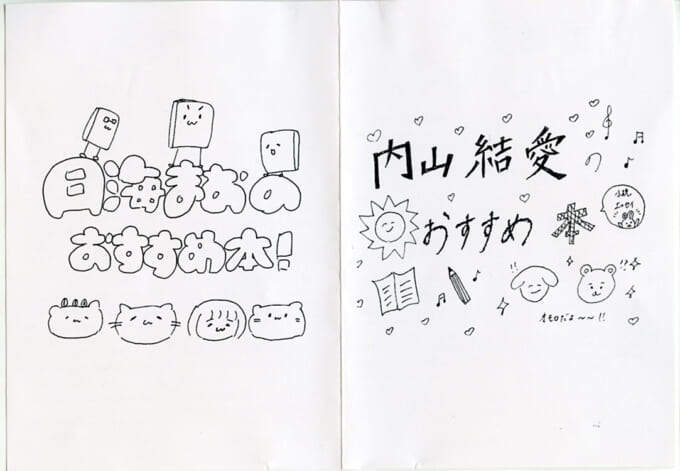 日海まおの
おすすめ本!
内山結愛の
おすすめ 本
小説
エッセイ
!!
!?
オモロだよ〜〜!!